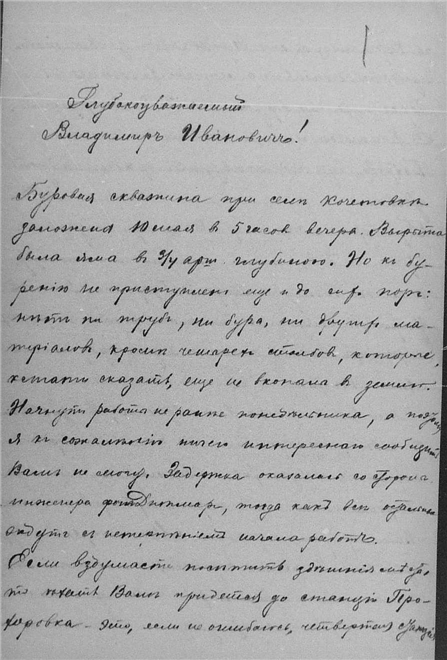 Глубокоуважаемый
Владимиръ Ивановичъ!
Буровая скважина при селѣ Кочетовкѣ
заложена 10 мая в 5 часов вечера. Вырыта
была яма в 3/4 арш. глубиною. Но къ бу-
ренію не приступлено еще и до сих пор:
нѣтъ ни трубъ, ни бура, ни других ма-
теріалов, кромѣ четырех столбов, которые,
кстати сказать, еще не вкопаны в землю.
Начнут работы не ранѣе понедѣльника, а потому
я къ сожалѣнію ничего интереснаго сообщить
Вамъ не могу. Задержка оказалась со стороны
инженера фонъ Дитмар, тогда какъ всѣ остальные
ждутъ с нетерпѣніем начала работъ.
Если вздумаете посѣтить здѣшнія мѣста,
то ѣхать Вамъ придется до станціи Про-
хоровка - это, если не ошибаюсь, четвертая станція